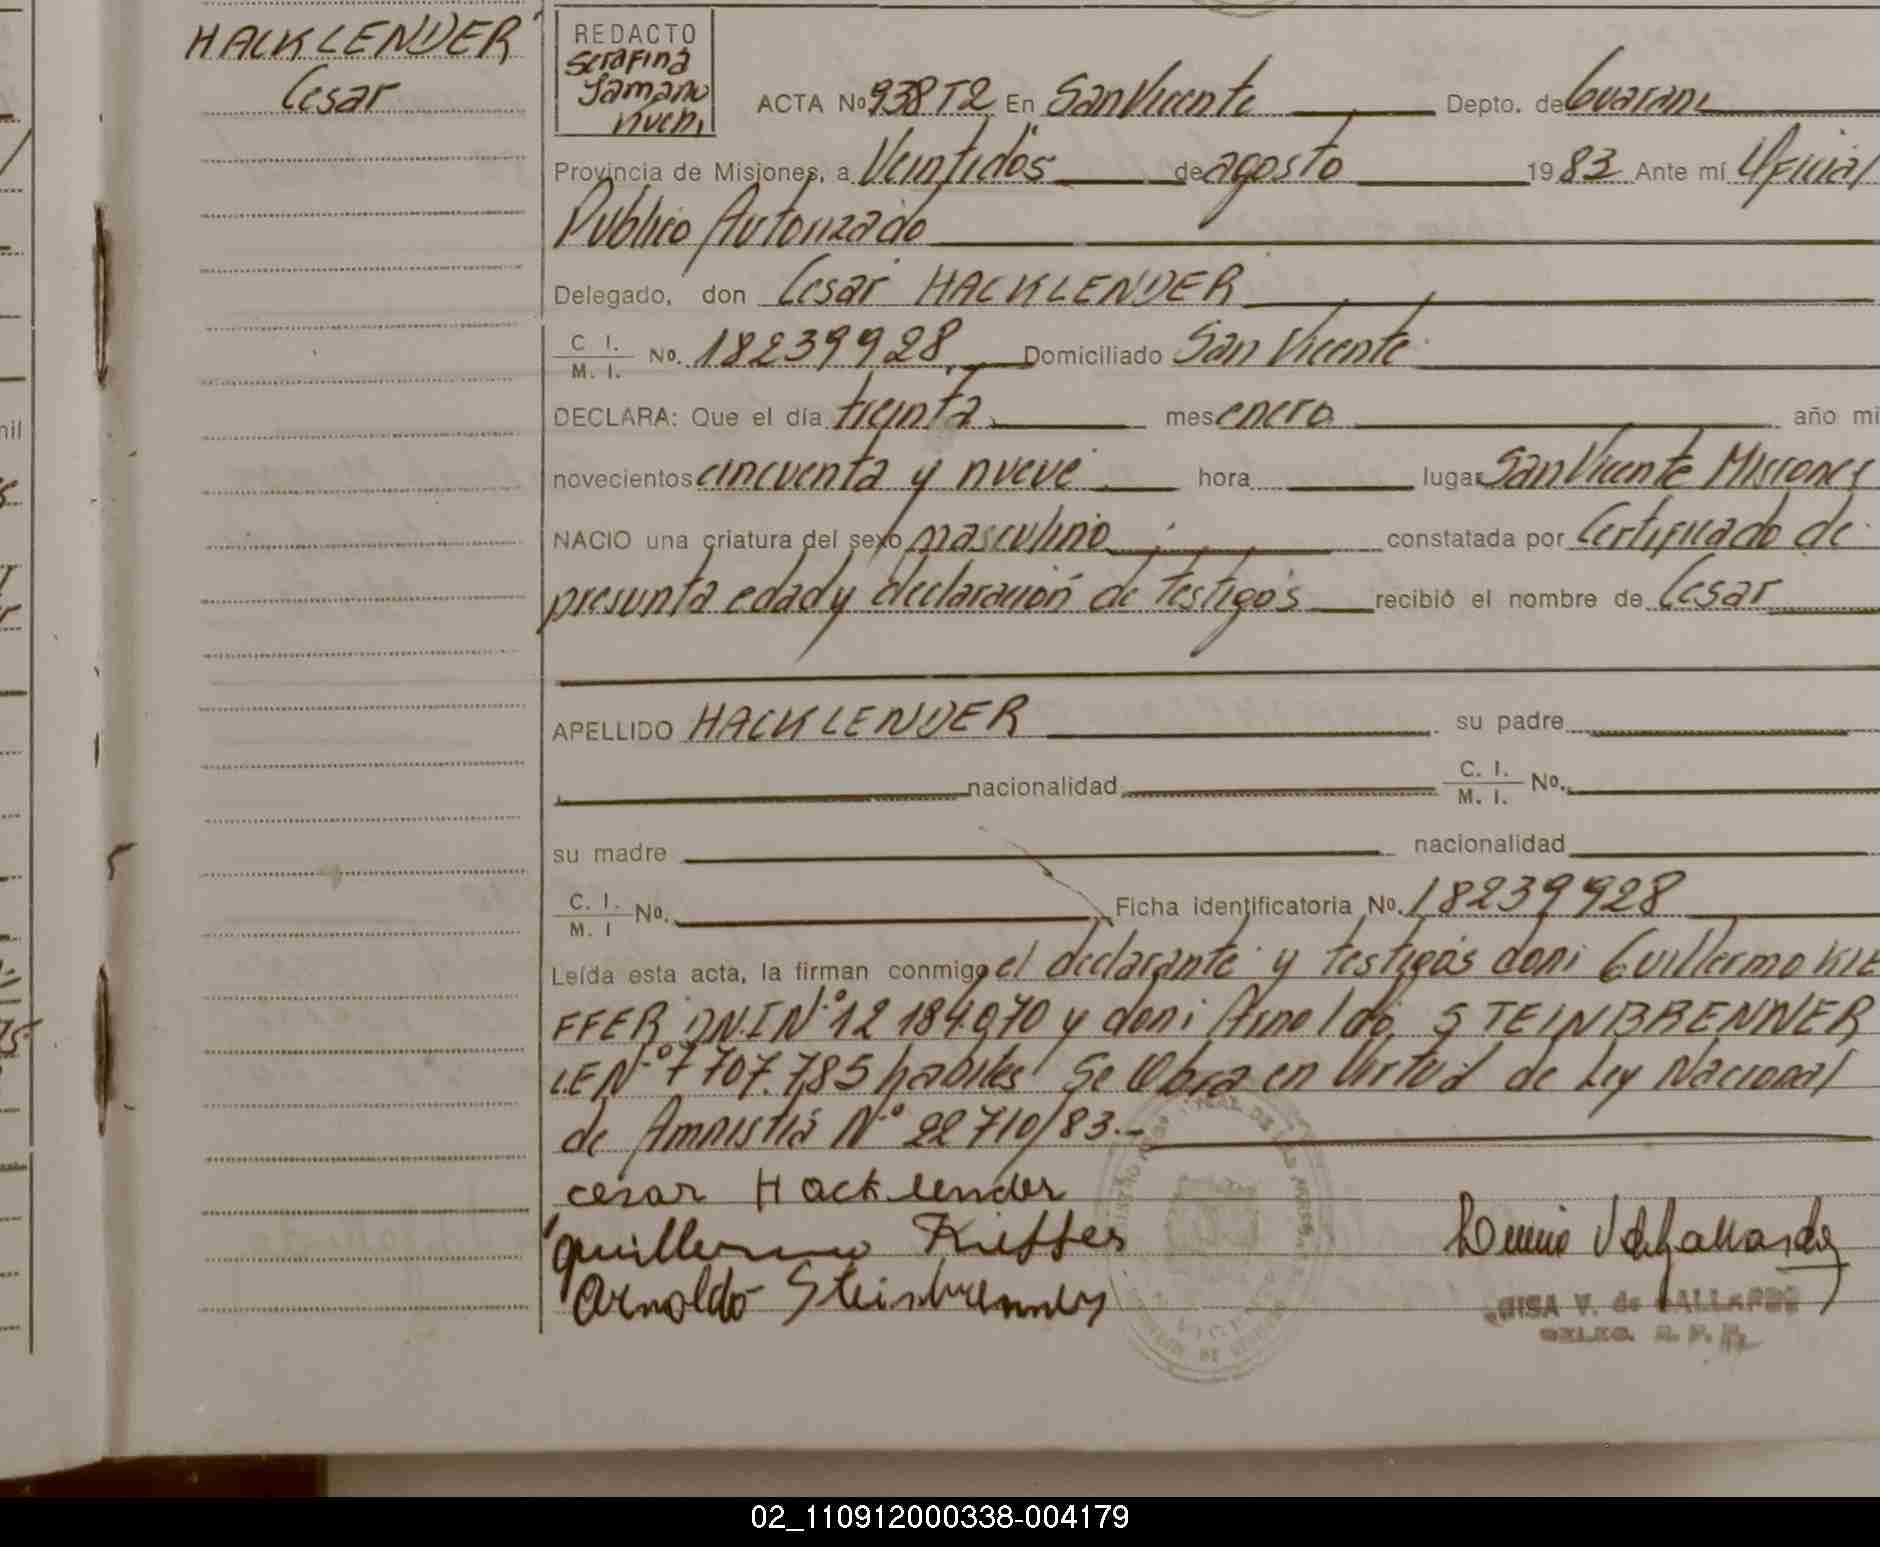 HACKLENDER
Cesar
REDACTO
Serafina
ACTA No 938 T2 En San Vicente Depto. de Guarani
Provincia de Misiones, a Veintidos de agosto 1983 Ante mí Oficial
Publico Autorizado
Delegado, don Cesar HACKLENDER
C I.
M. I. No. 18239928 Domiciliado San Vicente
DECLARA: Que el día treinta mes enero año mi
novecientos cincuenta y nueve hora lugar San Vicente Misiones
NACIO una criatura del sexo masculino constatada por Certificado de
presunta edad y declaración de testigos recibió el nombre de Cesar
APELLIDO HACKLENDER su padre
nacionalidad C. I.
M. I. No.
su madre nacionalidad
C. I.
M. I No. Ficha identificatoria No. 18239928
Leída esta acta, la firman conmigo el declarante y testigos don: Guillermo KIE
FFER DN.I Nº 12 184.070 y don: Arnoldo STEINBRENNER
LE Nº 7 707.785 habiles Se Obra en Virtud de Ley Nacional
de Amnistia Nº 22710/83.-
cesar Hacklender
guillermo Kieffer
Arnoldo Steinbrenner
V. de GALLARDO
02_110912000338-004179